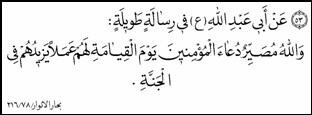 ٥٣ عَنْ أَبِي عَبْدِ اللهِ (ع) فِي رِسَالَةٍ طَوِيلَةٍ :
وَاللهُ مُصَيِّرٌ دُعَاءَ الْمُؤْمِنِينَ يَوْمَ الْقِيَامَةِ لَهُمْ عَمَلاً يَزِيدُهُمْ فِي
الْجَنَّةِ .
بحار الانوار / ٧٨ / ٢١٦